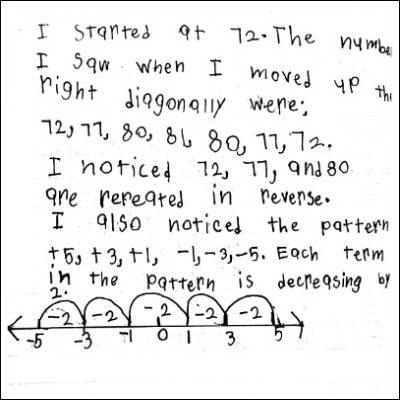 I started at 72. The number
I saw when I moved up the
right diagonally were:
72, 77, 80, 81, 80, 77, 72.
I noticed 72, 77, and 80
are repeated in reverse.
I also noticed the pattern
+5, +3, +1, -1, -3, -5. Each term
in the pattern is decreasing by
2.
-2 -2 -2 -2 -2
-5 -3 -1 0 1 3 5